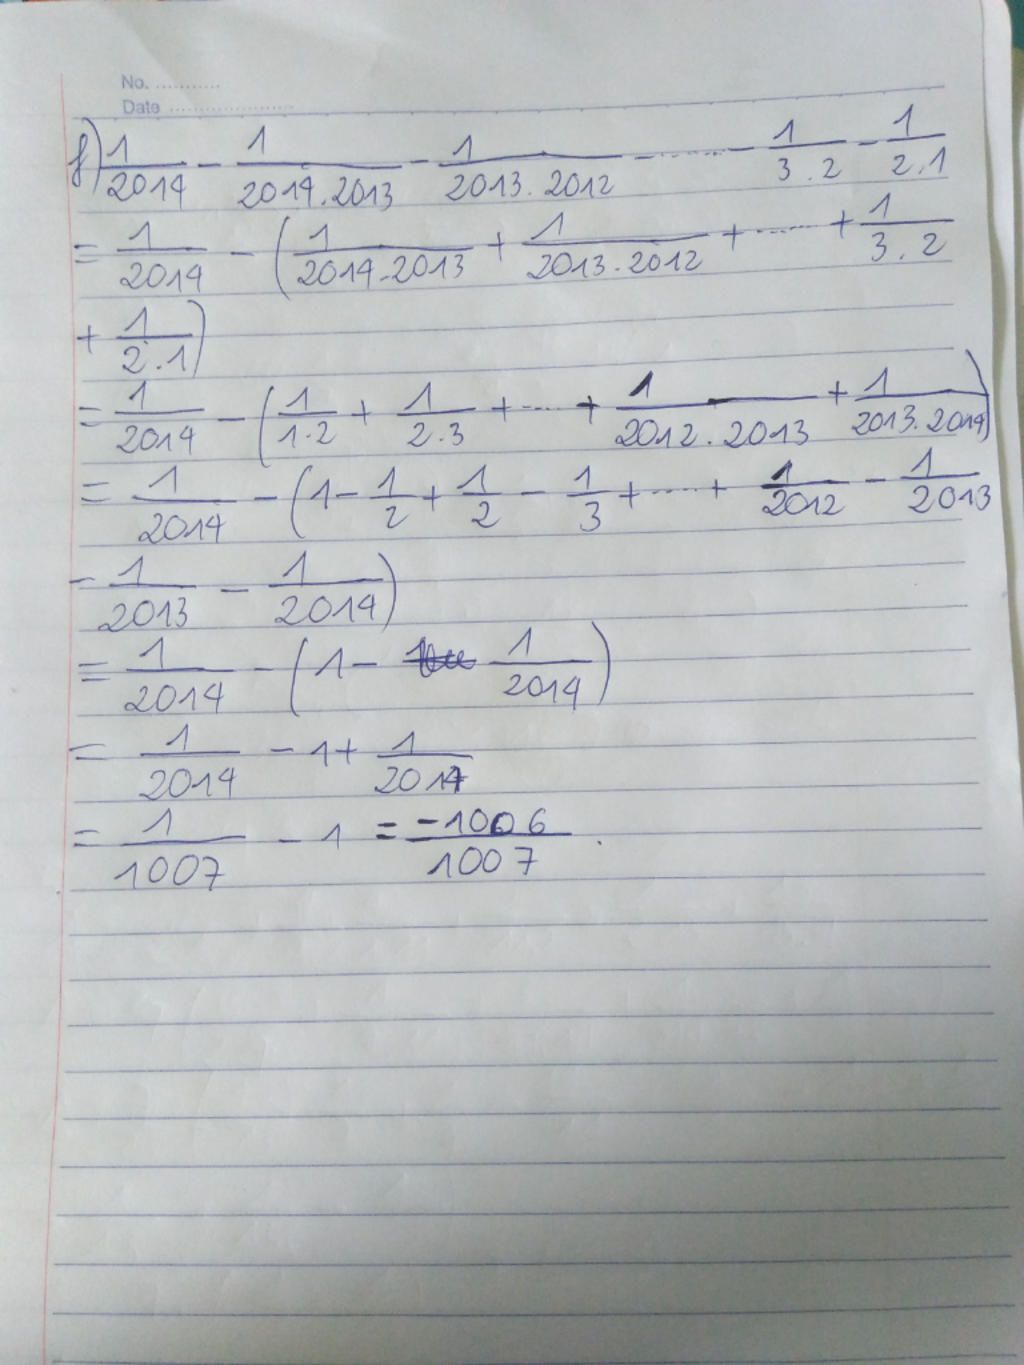 No. ............
Date ......................
f) 1/2014 - 1/2014.2013 - 1/2013.2012 - ........ - 1/3.2 - 1/2.1
= 1/2014 - (1/2014.2013 + 1/2013.2012 + ...... + 1/3.2
+ 1/2.1)
= 1/2014 - (1/1.2 + 1/2.3 + .... + 1/2012.2013 + 1/2013.2014)
= 1/2014 - (1 - 1/2 + 1/2 - 1/3 + ..... + 1/2012 - 1/2013
- 1/2013 - 1/2014)
= 1/2014 - (1 - 1/2014)
= 1/2014 - 1 + 1/2014
= 1/1007 - 1 = -1006/1007 .